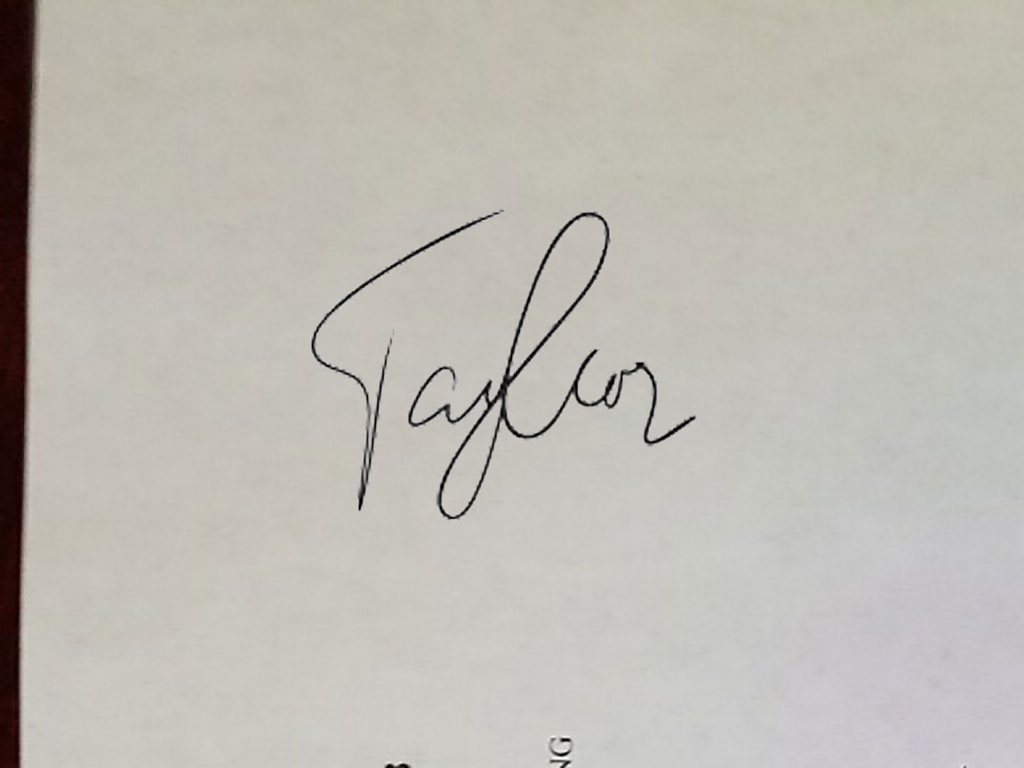 Taylor
NG